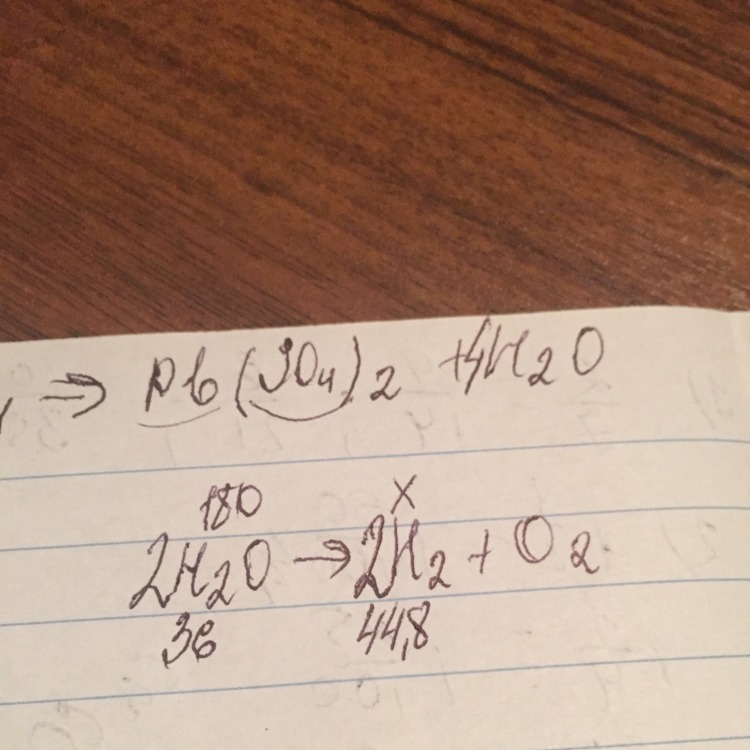 ⇒ Pb(SO₄)₂ + 4H₂O
180 x
2H₂O → 2H₂ + O₂
36 44,8